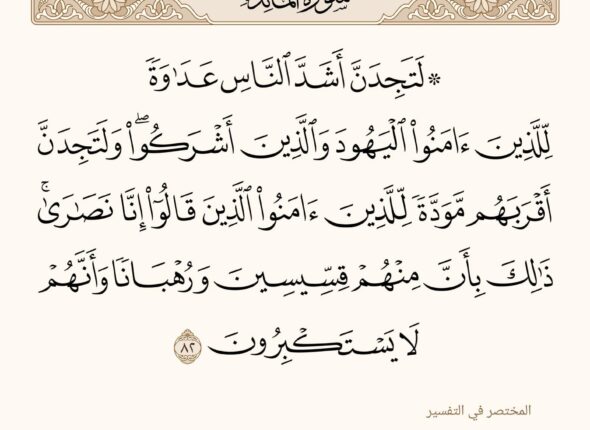 سورة المائدة
۞ لَتَجِدَنَّ أَشَدَّ ٱلنَّاسِ عَدَٰوَةٗ
لِّلَّذِينَ ءَامَنُواْ ٱلۡيَهُودَ وَٱلَّذِينَ أَشۡرَكُواْۖ وَلَتَجِدَنَّ
أَقۡرَبَهُم مَّوَدَّةٗ لِّلَّذِينَ ءَامَنُواْ ٱلَّذِينَ قَالُوٓاْ إِنَّا نَصَٰرَىٰۚ
ذَٰلِكَ بِأَنَّ مِنۡهُمۡ قِسِّيسِينَ وَرُهۡبَانٗا وَأَنَّهُمۡ
لَا يَسۡتَكۡبِرُونَ ٨٢
المختصر في التفسير